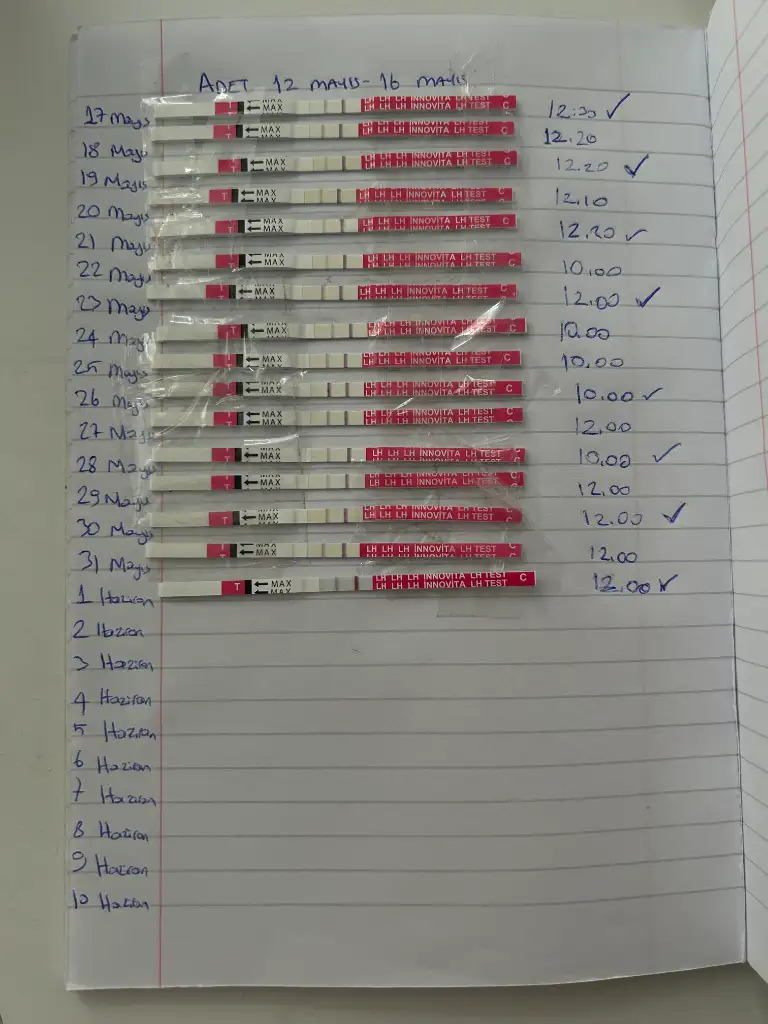 ADET 12 MAYIS - 16 MAYIS
17 Mayıs T ← MAX LH LH LH INNOVITA LH TEST C 12:30 ✓
18 Mayıs T ← MAX LH LH LH INNOVITA LH TEST 12.20
19 Mayıs ← MAX LH LH LH INNOVITA LH TEST C 12.20 ✓
20 Mayıs T ← MAX LH LH LH INNOVITA LH TEST C 12.10
21 Mayıs T ← MAX LH LH LH INNOVITA LH TEST C 12.20 ✓
22 Mayıs T ← MAX LH LH LH INNOVITA LH TEST C 10.00
23 Mayıs T ← MAX LH LH LH INNOVITA LH TEST C 12.00 ✓
24 Mayıs T ← MAX LH LH LH INNOVITA LH TEST C 10.00
25 Mayıs T ← MAX LH LH LH INNOVITA LH TEST C 10.00
26 Mayıs T ← MAX LH LH LH INNOVITA LH TEST C 10.00 ✓
27 Mayıs T ← MAX LH LH LH INNOVITA LH TEST C 12.00
28 Mayıs T ← MAX LH LH LH INNOVITA LH TEST C 10.00 ✓
29 Mayıs T ← MAX LH LH LH INNOVITA LH TEST C 12.00
30 Mayıs T ← MAX LH LH LH INNOVITA LH TEST C 12.00 ✓
31 Mayıs ← MAX LH LH LH INNOVITA LH TEST C 12.00
1 Haziran T ← MAX LH LH LH INNOVITA LH TEST C 12.00 ✓
2 Haziran
3 Haziran
4 Haziran
5 Haziran
6 Haziran
7 Haziran
8 Haziran
9 Haziran
10 Haziran